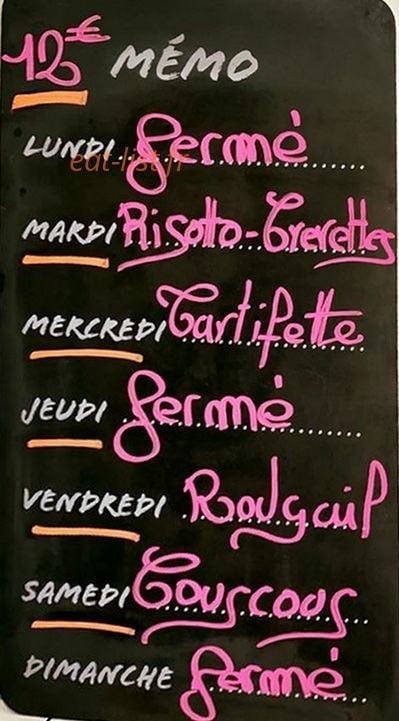 12€ MÉMO
LUNDI fermé
eat-list.fr
MARDI Risotto-Crevettes
MERCREDI Tartifette
JEUDI fermé
VENDREDI Rougail
SAMEDI Couscous
DIMANCHE fermé